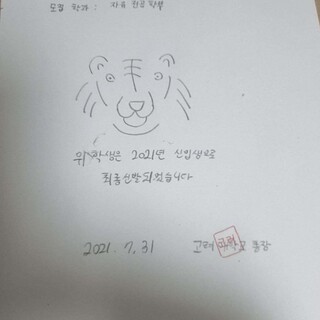 모집 학과 : 자유 전공 학부
위 학생은 2021년 신입생으로
최종선발되었습니다
2021. 7. 31
고려 학교 총장